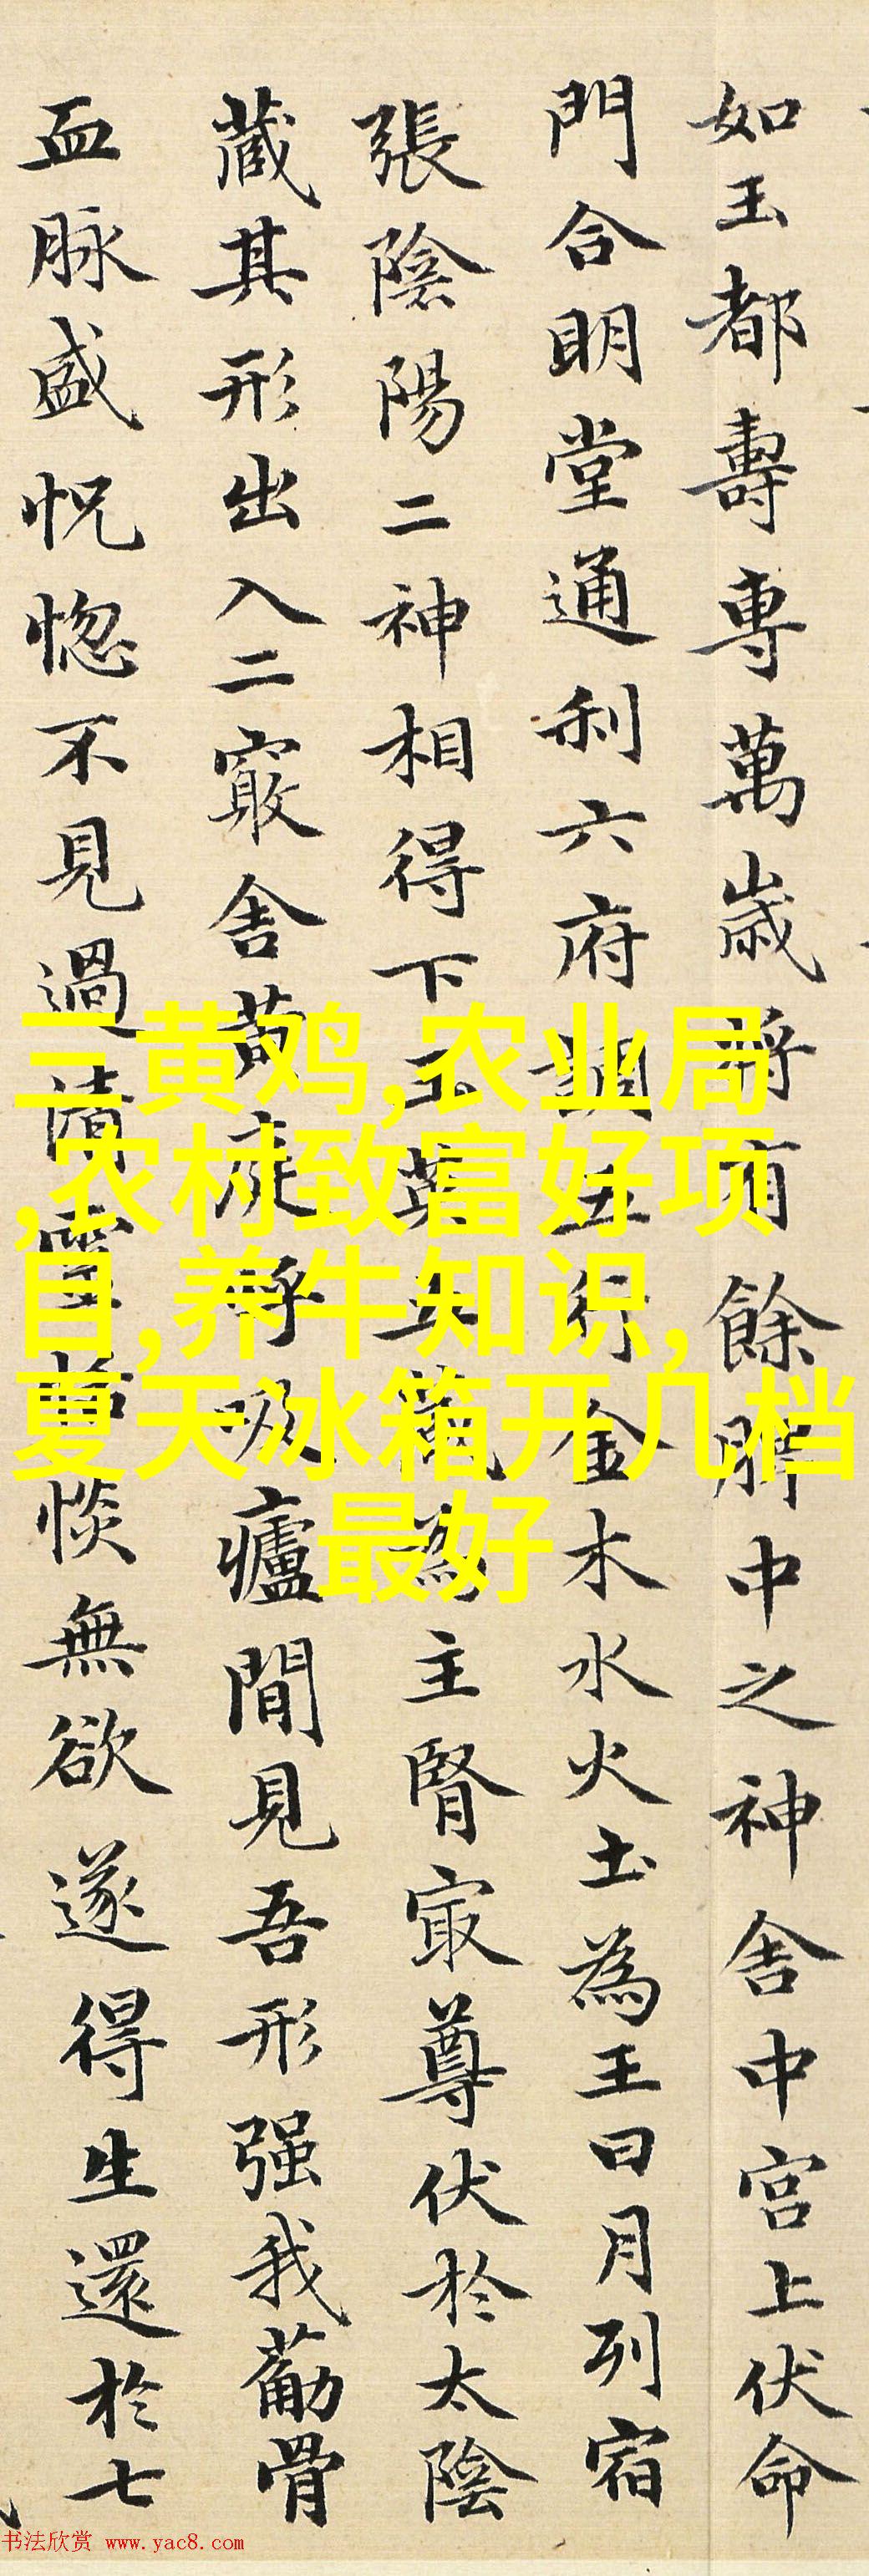 如玉都壽專萬歲將有餘脾中之神舍中宮上伏命
門合明堂通利六府調五行金木水火土為王日月列宿
張陰陽二神相得下玉英五藏為主腎㝡尊伏於太陰
藏其形出入二竅舍黄庭呼吸廬間見吾形强我筋骨
血脉盛怳惚不見過清靈恬惔無欲遂得生還於七
三黄鸡,农业局
,农村致富好项
目,养牛知识,
夏天冰箱开几档
最好
书法欣赏 www.yac8.com